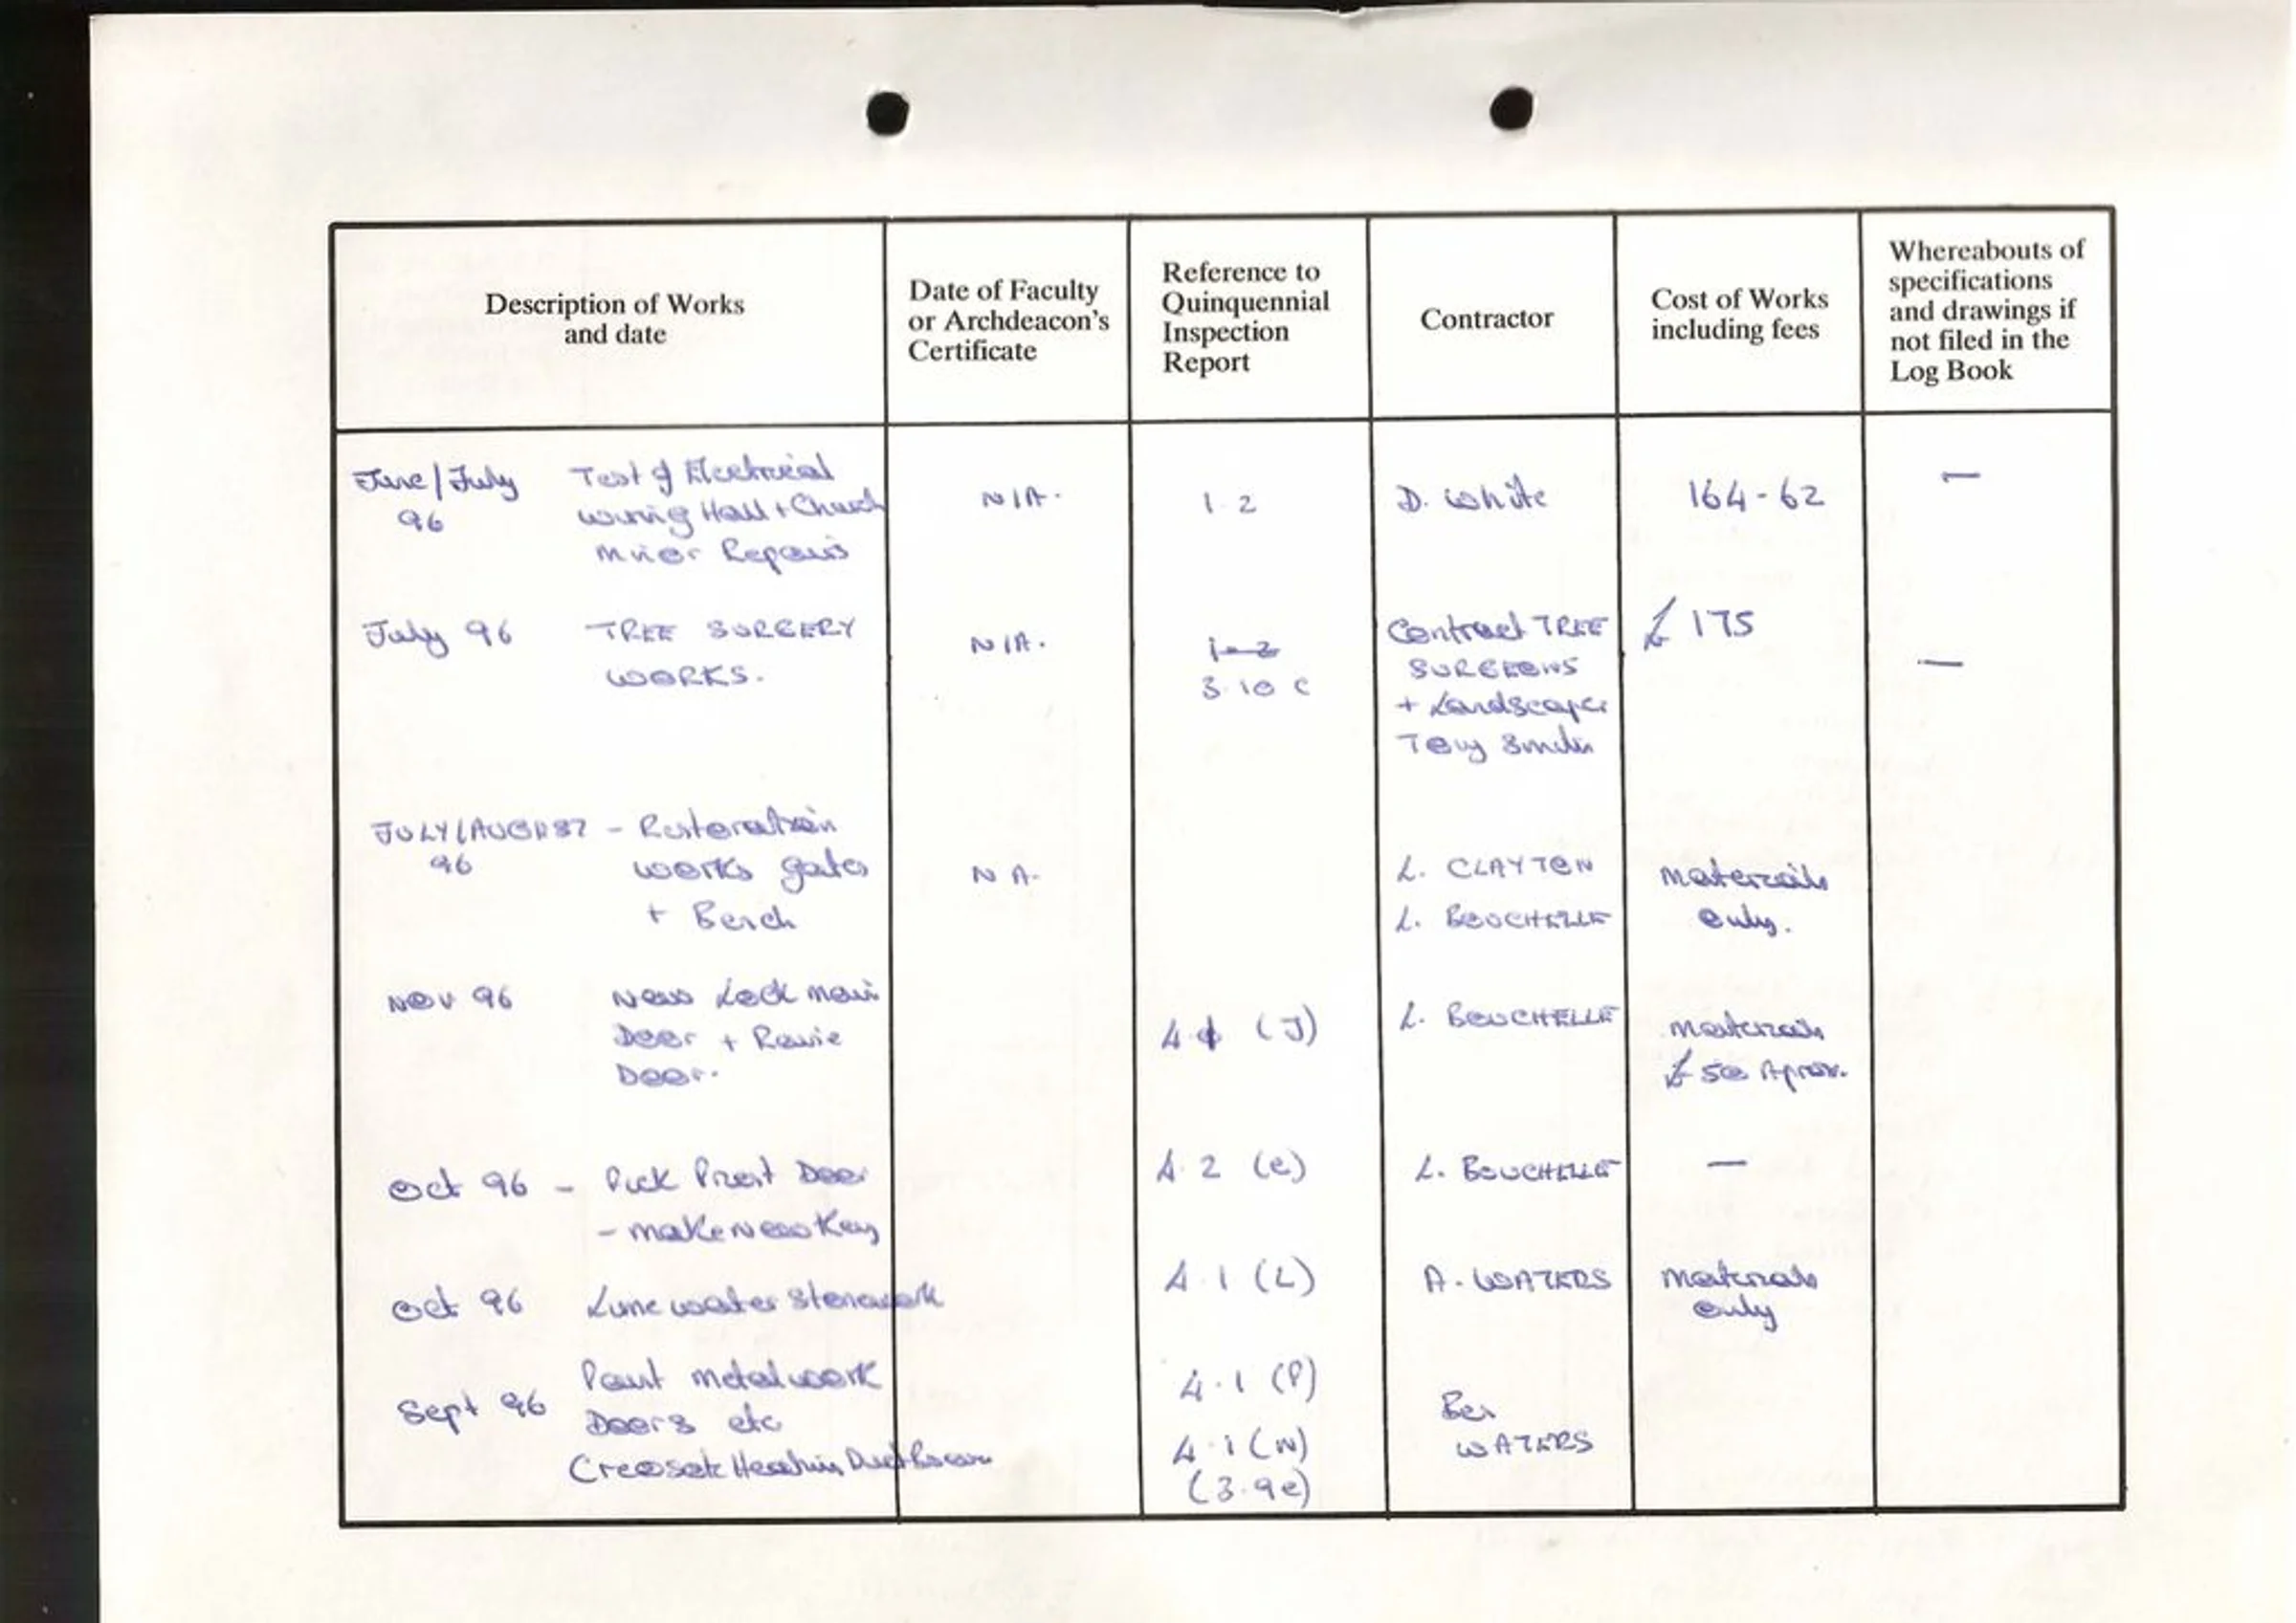 Description of Works
and date
Date of Faculty
or Archdeacon's
Certificate
Reference to
Quinquennial
Inspection
Report
Contractor
Cost of Works
including fees
Whereabouts of
specifications
and drawings if
not filed in the
Log Book
June/July
96
Test of Electrical
wiring Hall + Church
Minor Repairs
N/A.
1.2
D. White
164-62
—
July 96
TREE SURGERY
WORKS.
N/A.
1-2
3.10 c
Contract TREE
SURGEONS
+ Landscaper
Tony Smith
£ 175
—
JULY/AUGUST
96
- Restoration
works gates
+ Bench
N A.
L. CLAYTON
L. BOUCHELLE
materials
only.
NOV 96
New Lock main
Door +
Door.
4. (J)
L. BOUCHELLE
materials
£ 50 Aprox.
Oct 96 -
Pick Priest Door
- make New Key
4.2 (e)
L. BOUCHELLE
—
Oct 96
Lime water stonework
4.1 (L)
A. WATERS
materials
only
Sept 96
Paint metalwork
Doors etc
Creosote Heating Duct
4.1 (P)
4.1 (N)
(3.9e)
WATERS